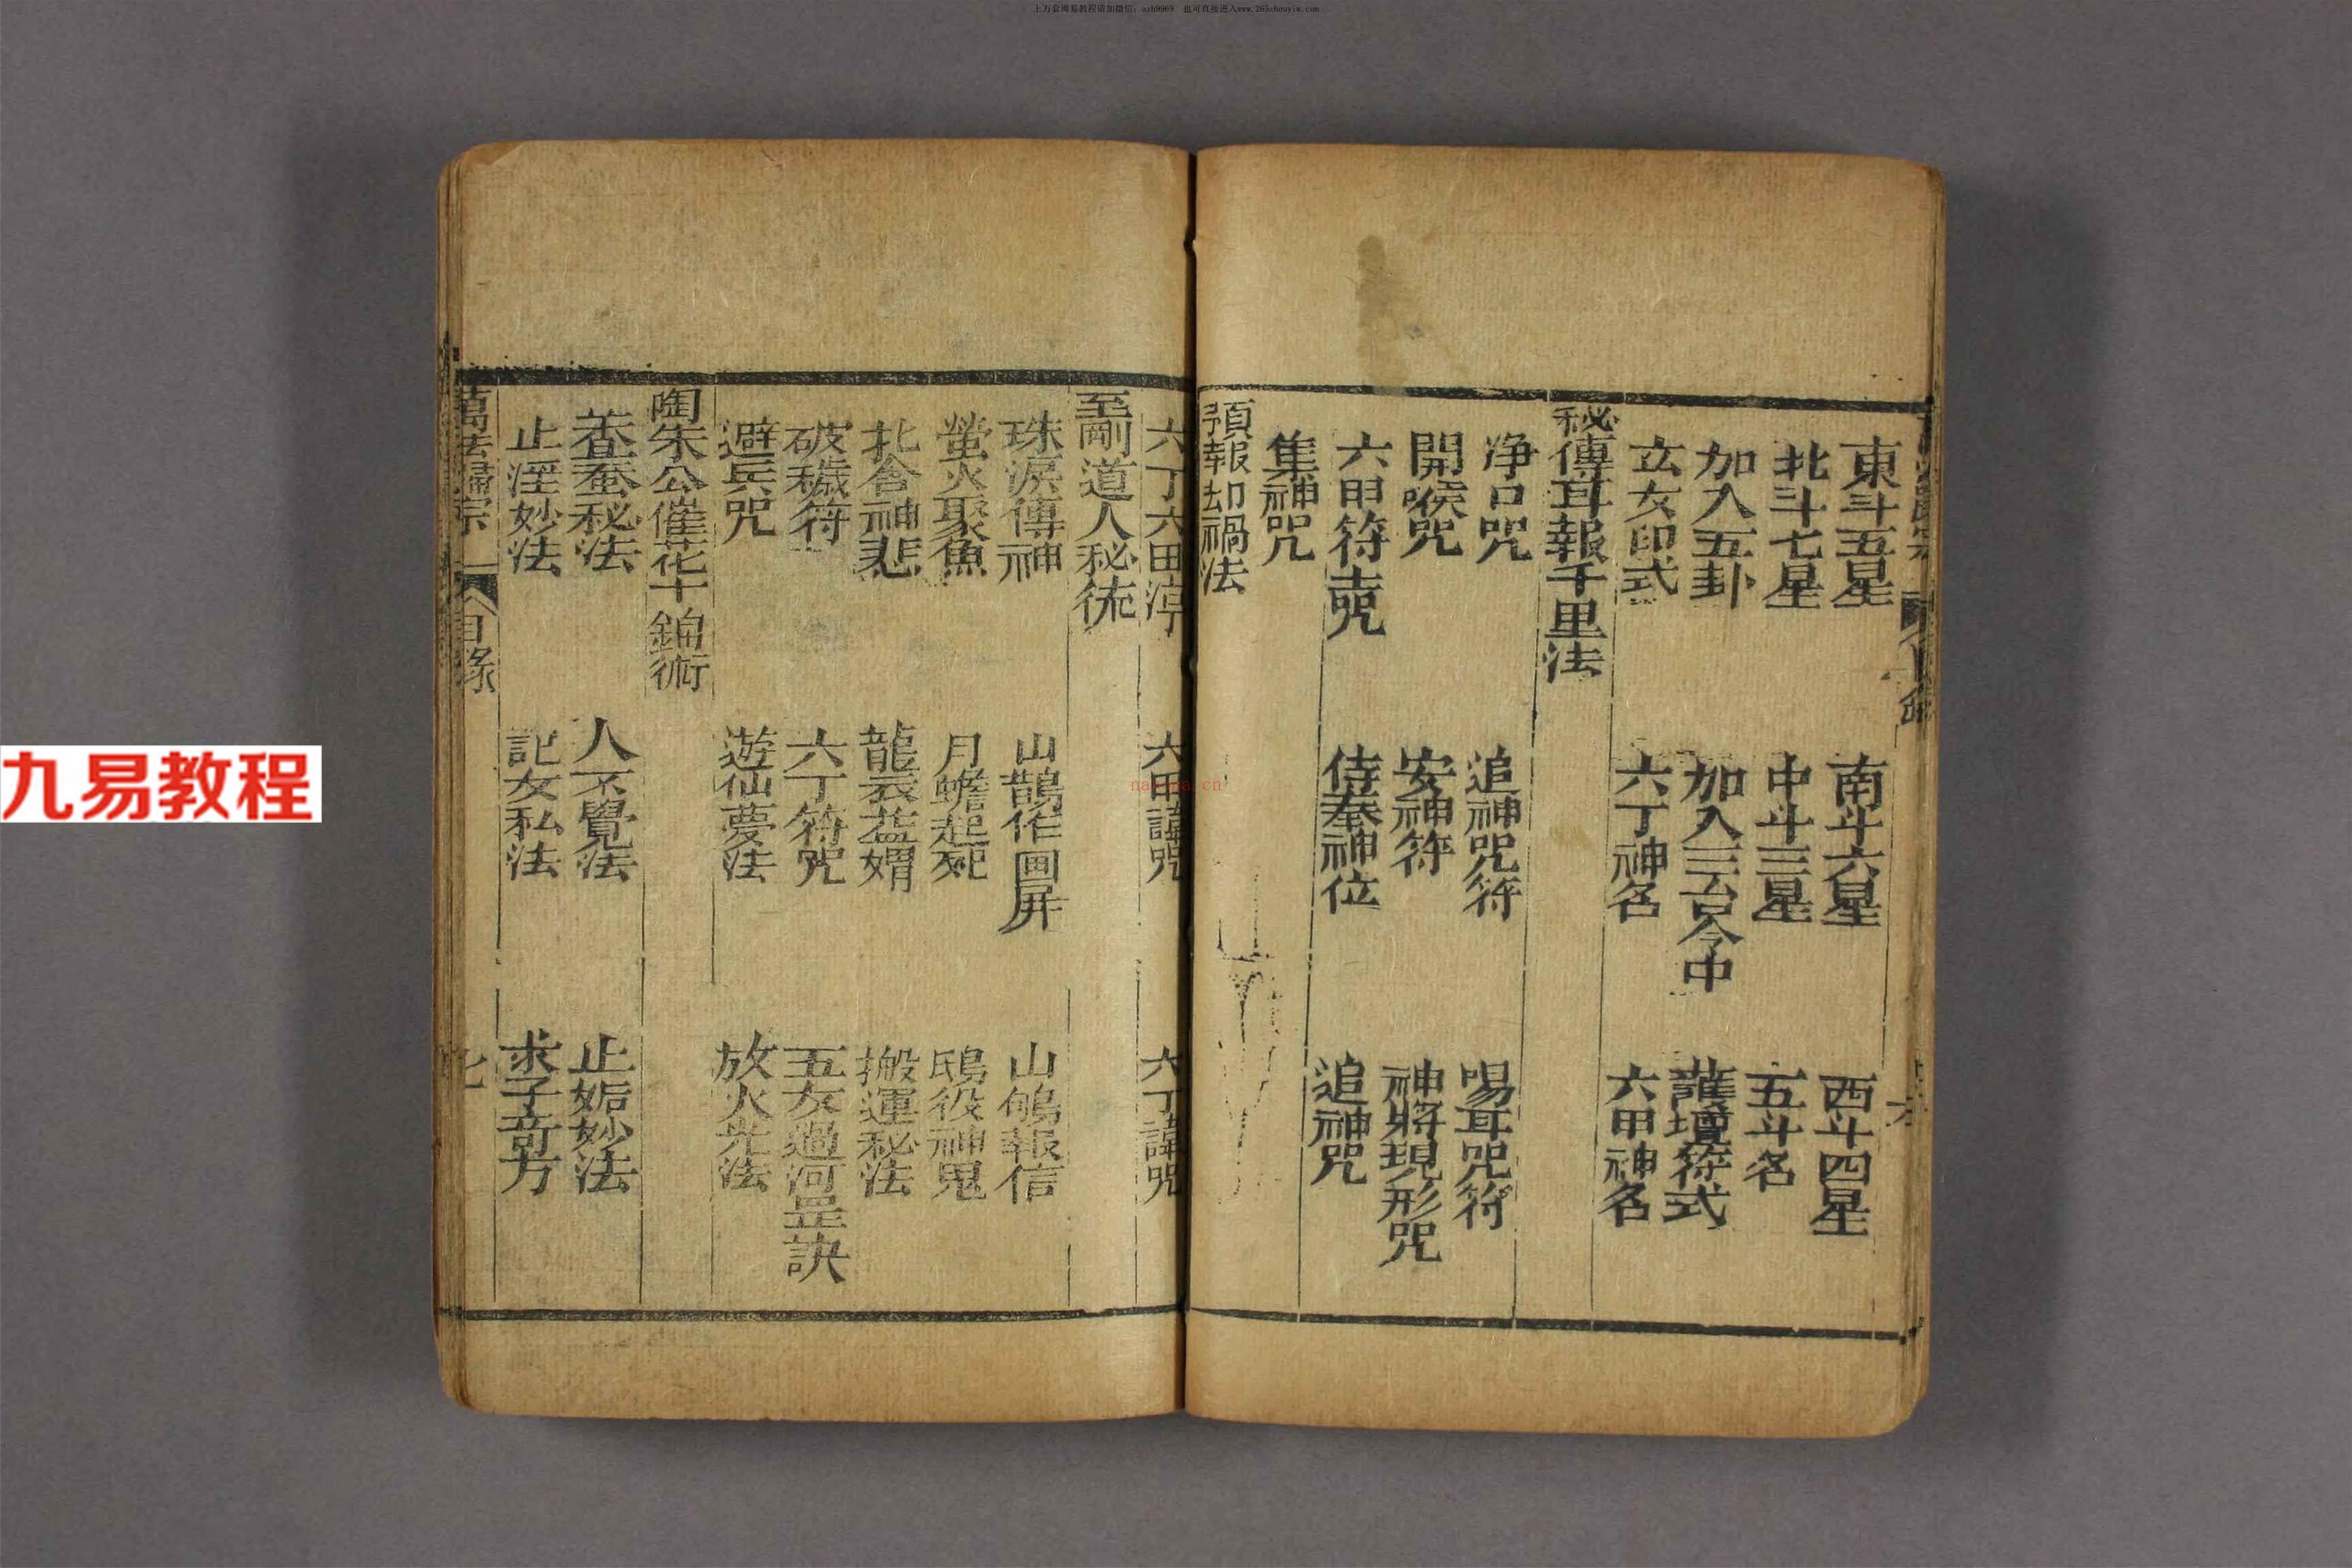 上万套周易教程请加微信：azh9969　也可直接进入www.265zhouyiw.com
東斗五星　南斗六星　西斗四星
北斗七星　中斗三星　五斗名
加入五卦　加入三台令中　護壇符式
玄女印式　六丁神名　六甲神名
秘傳耳報千里法
净口咒　追神咒符　喝耳咒符
開喉咒　安神符　神將現形咒
六甲符咒　侍奉神位　追神咒
集神咒
預報却禍法
六丁六甲　六甲諱咒　六丁諱咒
至剛道人秘術
珠淚傳神　山鵲作画屏　山鳩報信
螢火聚魚　月蟾起死　鴟役神鬼
北含神悲　龍衣　搬運秘法
破穢符　六丁符咒　五女過河罡訣
避兵咒　遊仙夢法　放火光法
陶朱公催花十錦術
蚕秘法　人不覺法　止妬妙法
止淫妙法　記女私法　求子竒方
萬法歸宗　目录　七
九易教程
nayona.cn